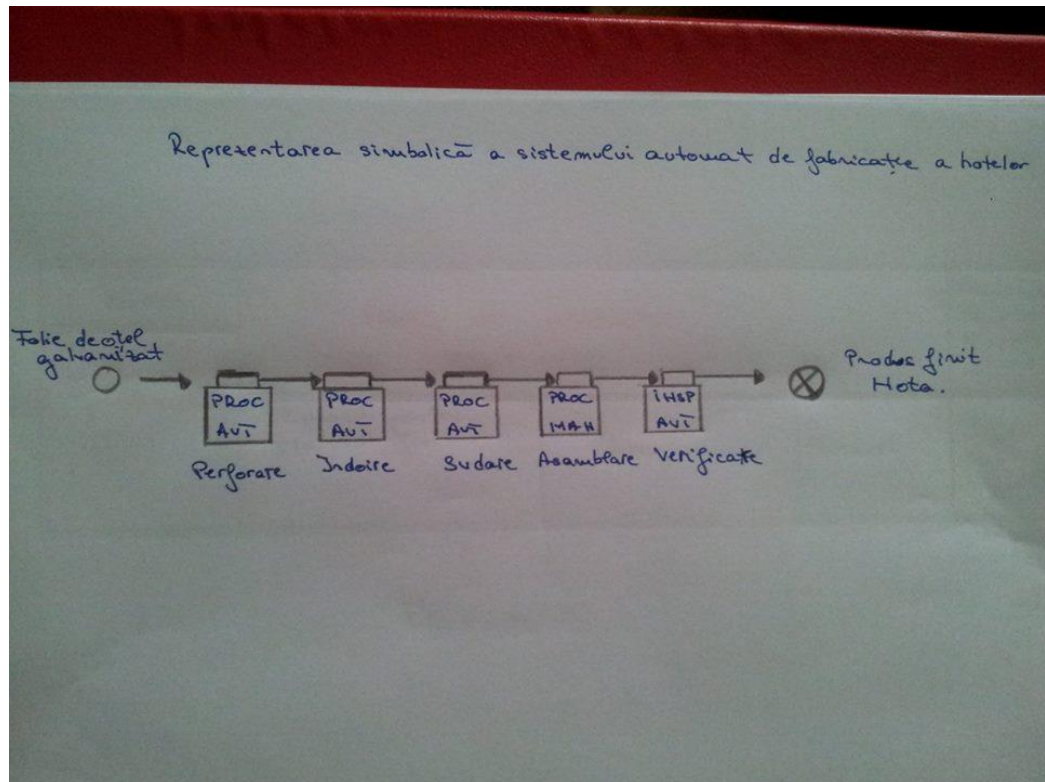 Reprezentarea simbolică a sistemului automat de fabricație a hotelor
Folie de otel
galvanizat
PROC
AUT
PROC
AUT
PROC
AUT
PROC
MAN
INSP
AUT
Perforare
Indoire
Sudare
Asamblare
Verificare
Produs finit
Hota.